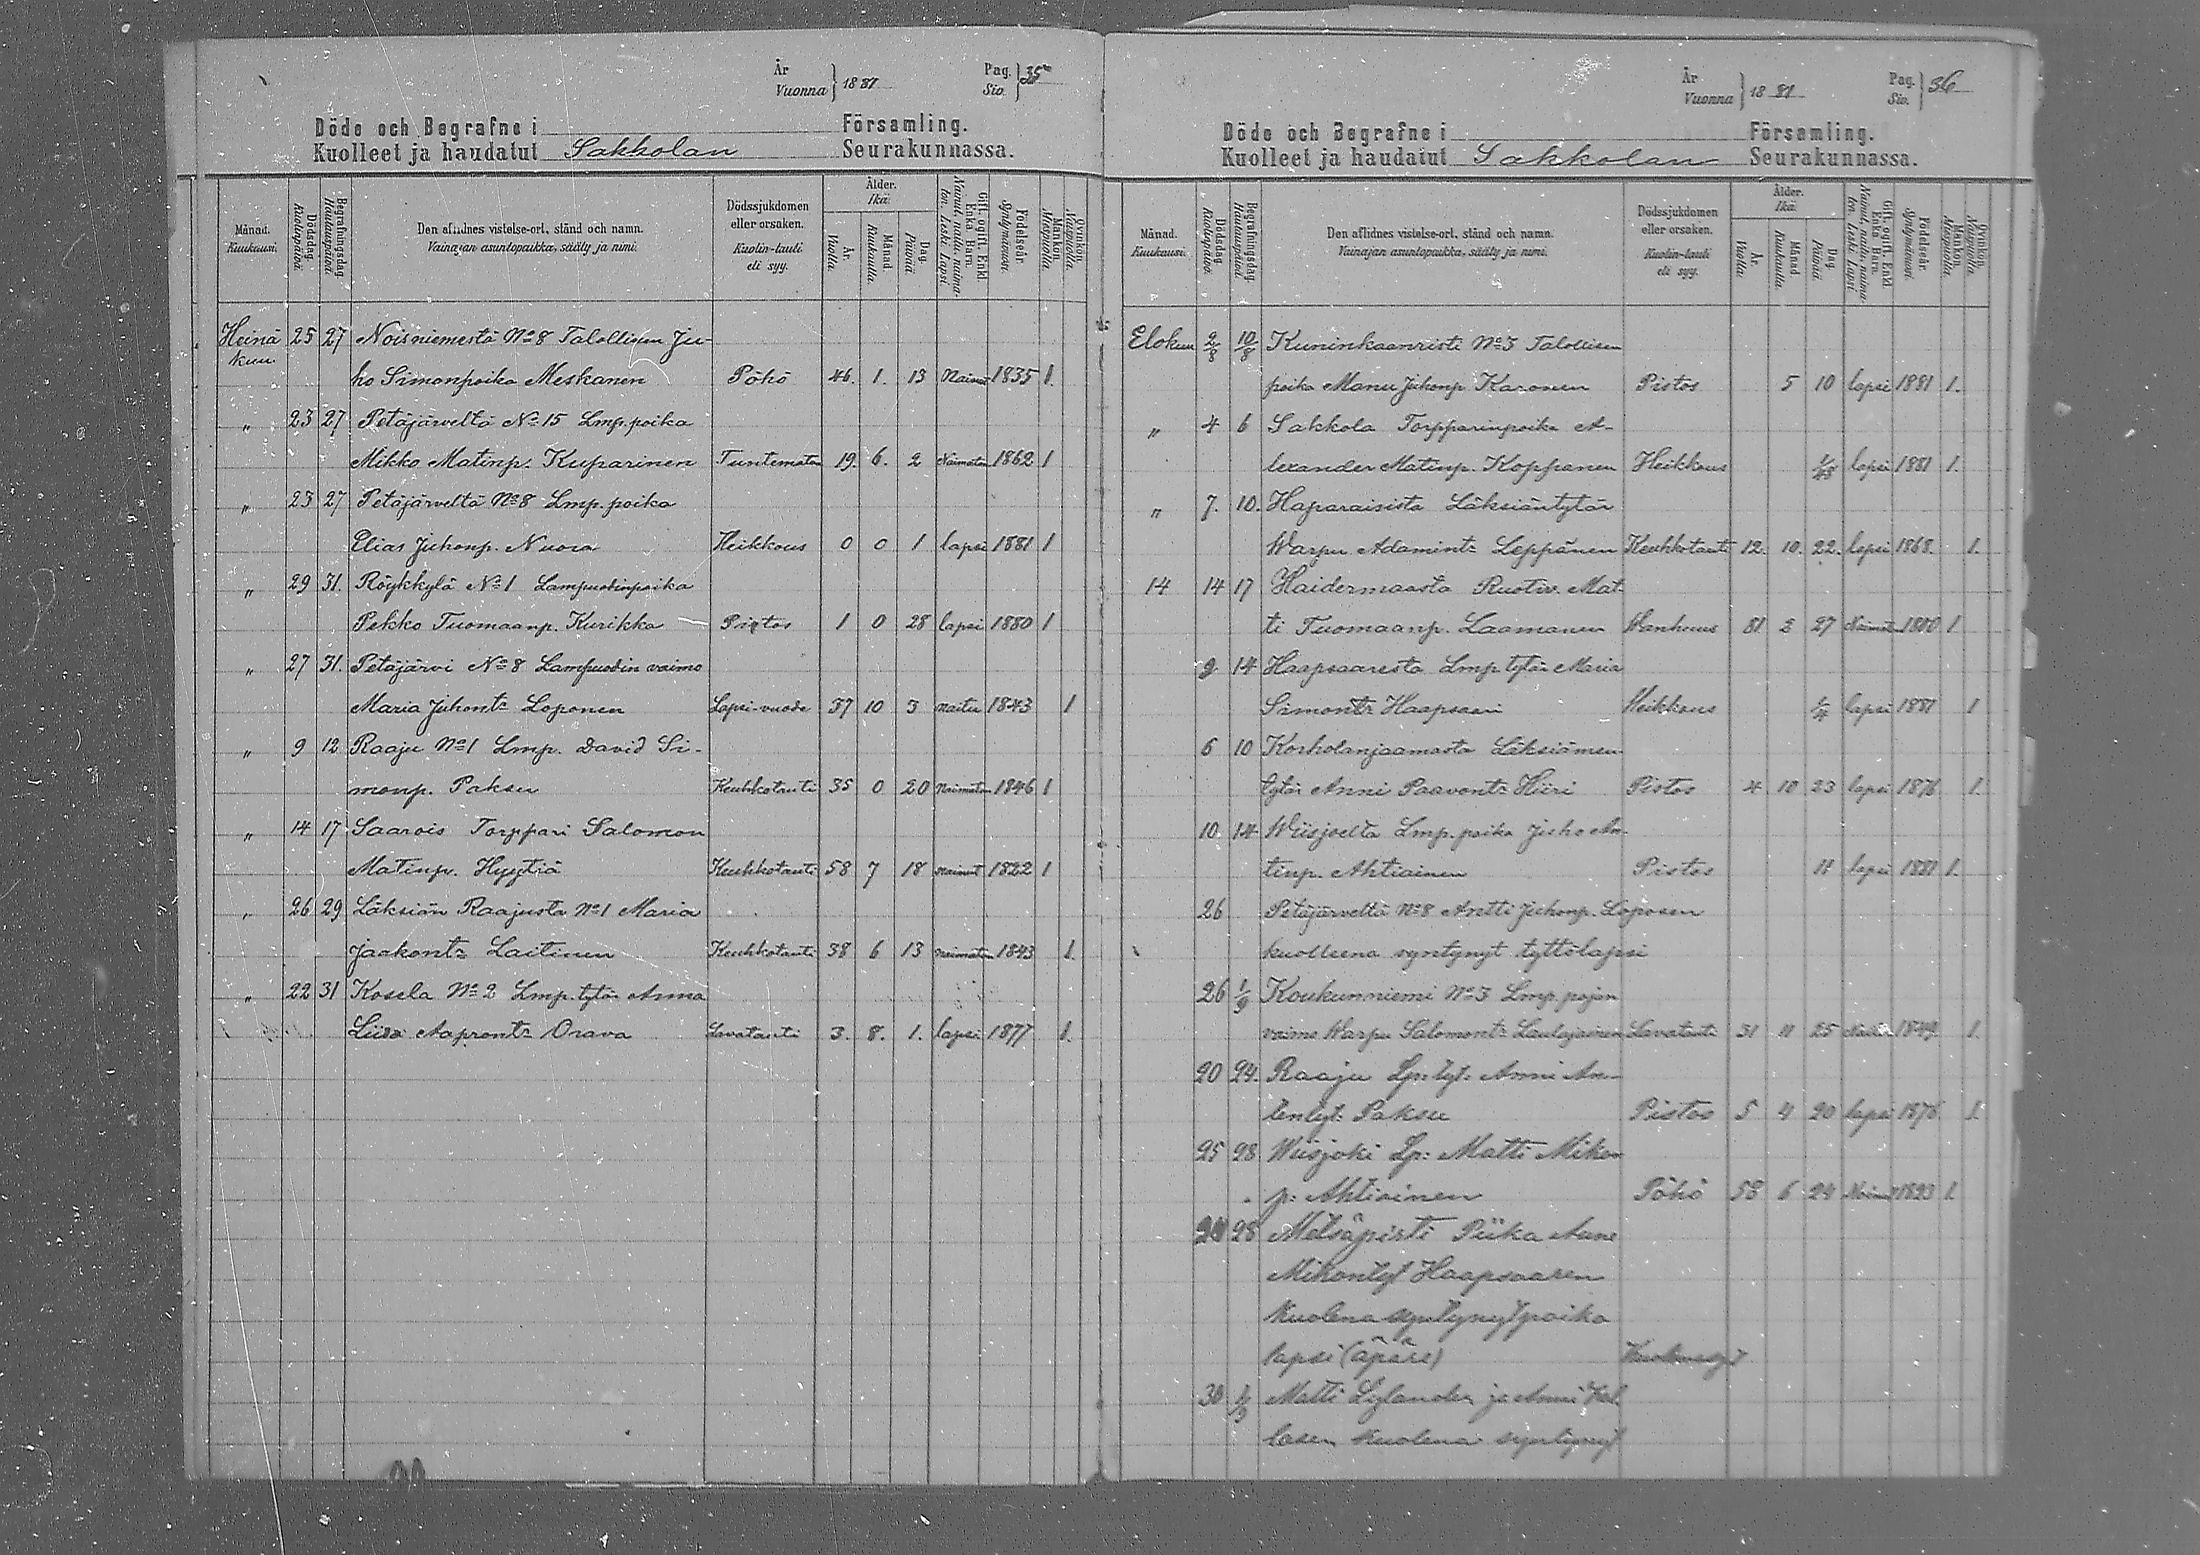 År
Vuonna } 1881
Pag.
Siv. } 35
Döde och Begrafne i Församling.
Kuolleet ja haudatut Sakkolan Seurakunnassa.
Månad. Kuukausi.
Dödsdag. Kuolinpäivä.
Begrafningsdag. Hautauspäivä.
Den aflidnes vistelse-ort, stånd och namn.
Vainajan asuntopaikka, sääty ja nimi.
Dödssjukdomen eller orsaken.
Kuolin-tauti eli syy.
Ålder. Ikä.
År. Vuotta.
Månad. Kuukautta.
Dag. Päivää.
Gift, ogift, Enkl. Enka, Barn.
Nainut, naitu, naimaton, Leski, Lapsi.
Födelseår. Syntymävuosi.
Mankön. Miespuolia.
Qvinkön. Naispuolia.
Heinä 25 27 Noisniemestä No 8 Talollisen Ju-
kuu. ho Simonpoika Meskanen Pöhö 46. 1. 13 Nainut 1835 1.
" 23 27 Petäjärveltä No 15 Lmp. poika
Mikko Matinp. Kuparinen Tuntematon 19. 6. 2 Naimaton 1862 1
" 23 27 Petäjärveltä No 8 Lmp. poika
Elias Juhonp. Nuora Heikkous 0 0 1 lapsi 1881 1
" 29 31. Röykkylä No 1 Lampuodinpoika
Pekko Tuomaanp. Kurikka Pistos 1 0 28 lapsi 1880 1
" 27 31. Petäjärvi No 8 Lampuodin vaimo
Maria Juhontr Loponen Lapsi-vuode 37 10 3 naitu 1843 1
" 9 12 Raaju No 1 Lmp. David Si-
monp. Paksu Keuhkotauti 35 0 20 Naimaton 1846 1
" 14 17 Saarois Torppari Salomon
Matinp. Hyytiä Keuhkotauti 58 7 18 nainut 1822 1
" 26 29 Läksiän Raajusta No 1 Maria
Jaakontr Laitinen Keuhkotauti 38 6 13 naimaton 1843 1.
" 22 31 Kosela No 2 Lmp. tytär Anna
Liisa Aaprontr Orava Lavatauti 3. 8. 1. lapsi 1877 1.
År
Vuonna } 1881
Pag.
Siv. } 36
Döde och Begrafne i Församling.
Kuolleet ja haudatut Sakkolan Seurakunnassa.
Månad. Kuukausi.
Dödsdag. Kuolinpäivä.
Begrafningsdag. Hautauspäivä.
Den aflidnes vistelse-ort, stånd och namn.
Vainajan asuntopaikka, sääty ja nimi.
Dödssjukdomen eller orsaken.
Kuolin-tauti eli syy.
Ålder. Ikä.
År. Vuotta.
Månad. Kuukautta.
Dag. Päivää.
Gift, ogift, Enkl. Enka, Barn.
Nainut, naitu, naimaton, Leski, Lapsi.
Födelseår. Syntymävuosi.
Mankön. Miespuolia.
Qvinkön. Naispuolia.
Elokuu 2/8 10/8 Kuninkaanristi No 3 Talollisen
poika Manu Juhonp. Karonen Pistos 5 10 lapsi 1881 1.
" 4 6 Sakkola Torpparinpoika A-
lexander Matinp. Koppanen Heikkous 1/48 lapsi 1881 1.
" 7. 10. Haparaisista Läksiäntytär
Warpu Adamintr Leppänen Keuhkotauti 12. 10. 22. lapsi 1868. 1.
14 14 17 Haidermaasta Ruotiv. Mat-
ti Tuomaanp. Laamanen Wanhuus 81 2 27 1800 1
9 14 Haapsaaresta Lmp. tytär Maria
Simontr Haapsaari Heikkous 1/4 lapsi 1881 1
6 10 Korholanjaamasta Läksiämen
tytär Anni Paavontr Hiiri Pistos 4 10 23 lapsi 1876 1.
10. 14 Wiisjoelta Lmp. poika Juho An-
tinp. Ahtiainen Pistos 11 lapsi 1881 1.
26 Petäjärveltä No 8 Antti Juhonp. Loposen
kuolleena syntynyt tyttölapsi
26 1/9 Koukunniemi No 3 Lmp. pojan
vaimo Warpu Salomontr Laulajainen Lavatauti 31 11 25 Naitu 1849 1.
20 24. Raaju Lp. tyt. Anni An-
tintyt. Paksu Pistos 5 4 20 lapsi 1876 1.
25 28 Wiisjoki Lp: Matti Mikon
p: Ahtiainen Pöhö 58 6 24 Nainut 1823 1.
28 Metsäpirti Piika Anne
Mikontyt Haapsaaren
kuolena syntynyt poika
lapsi (äpäre)
30 1/9 Matti Sylander ja Anni
kuolena syntynyt